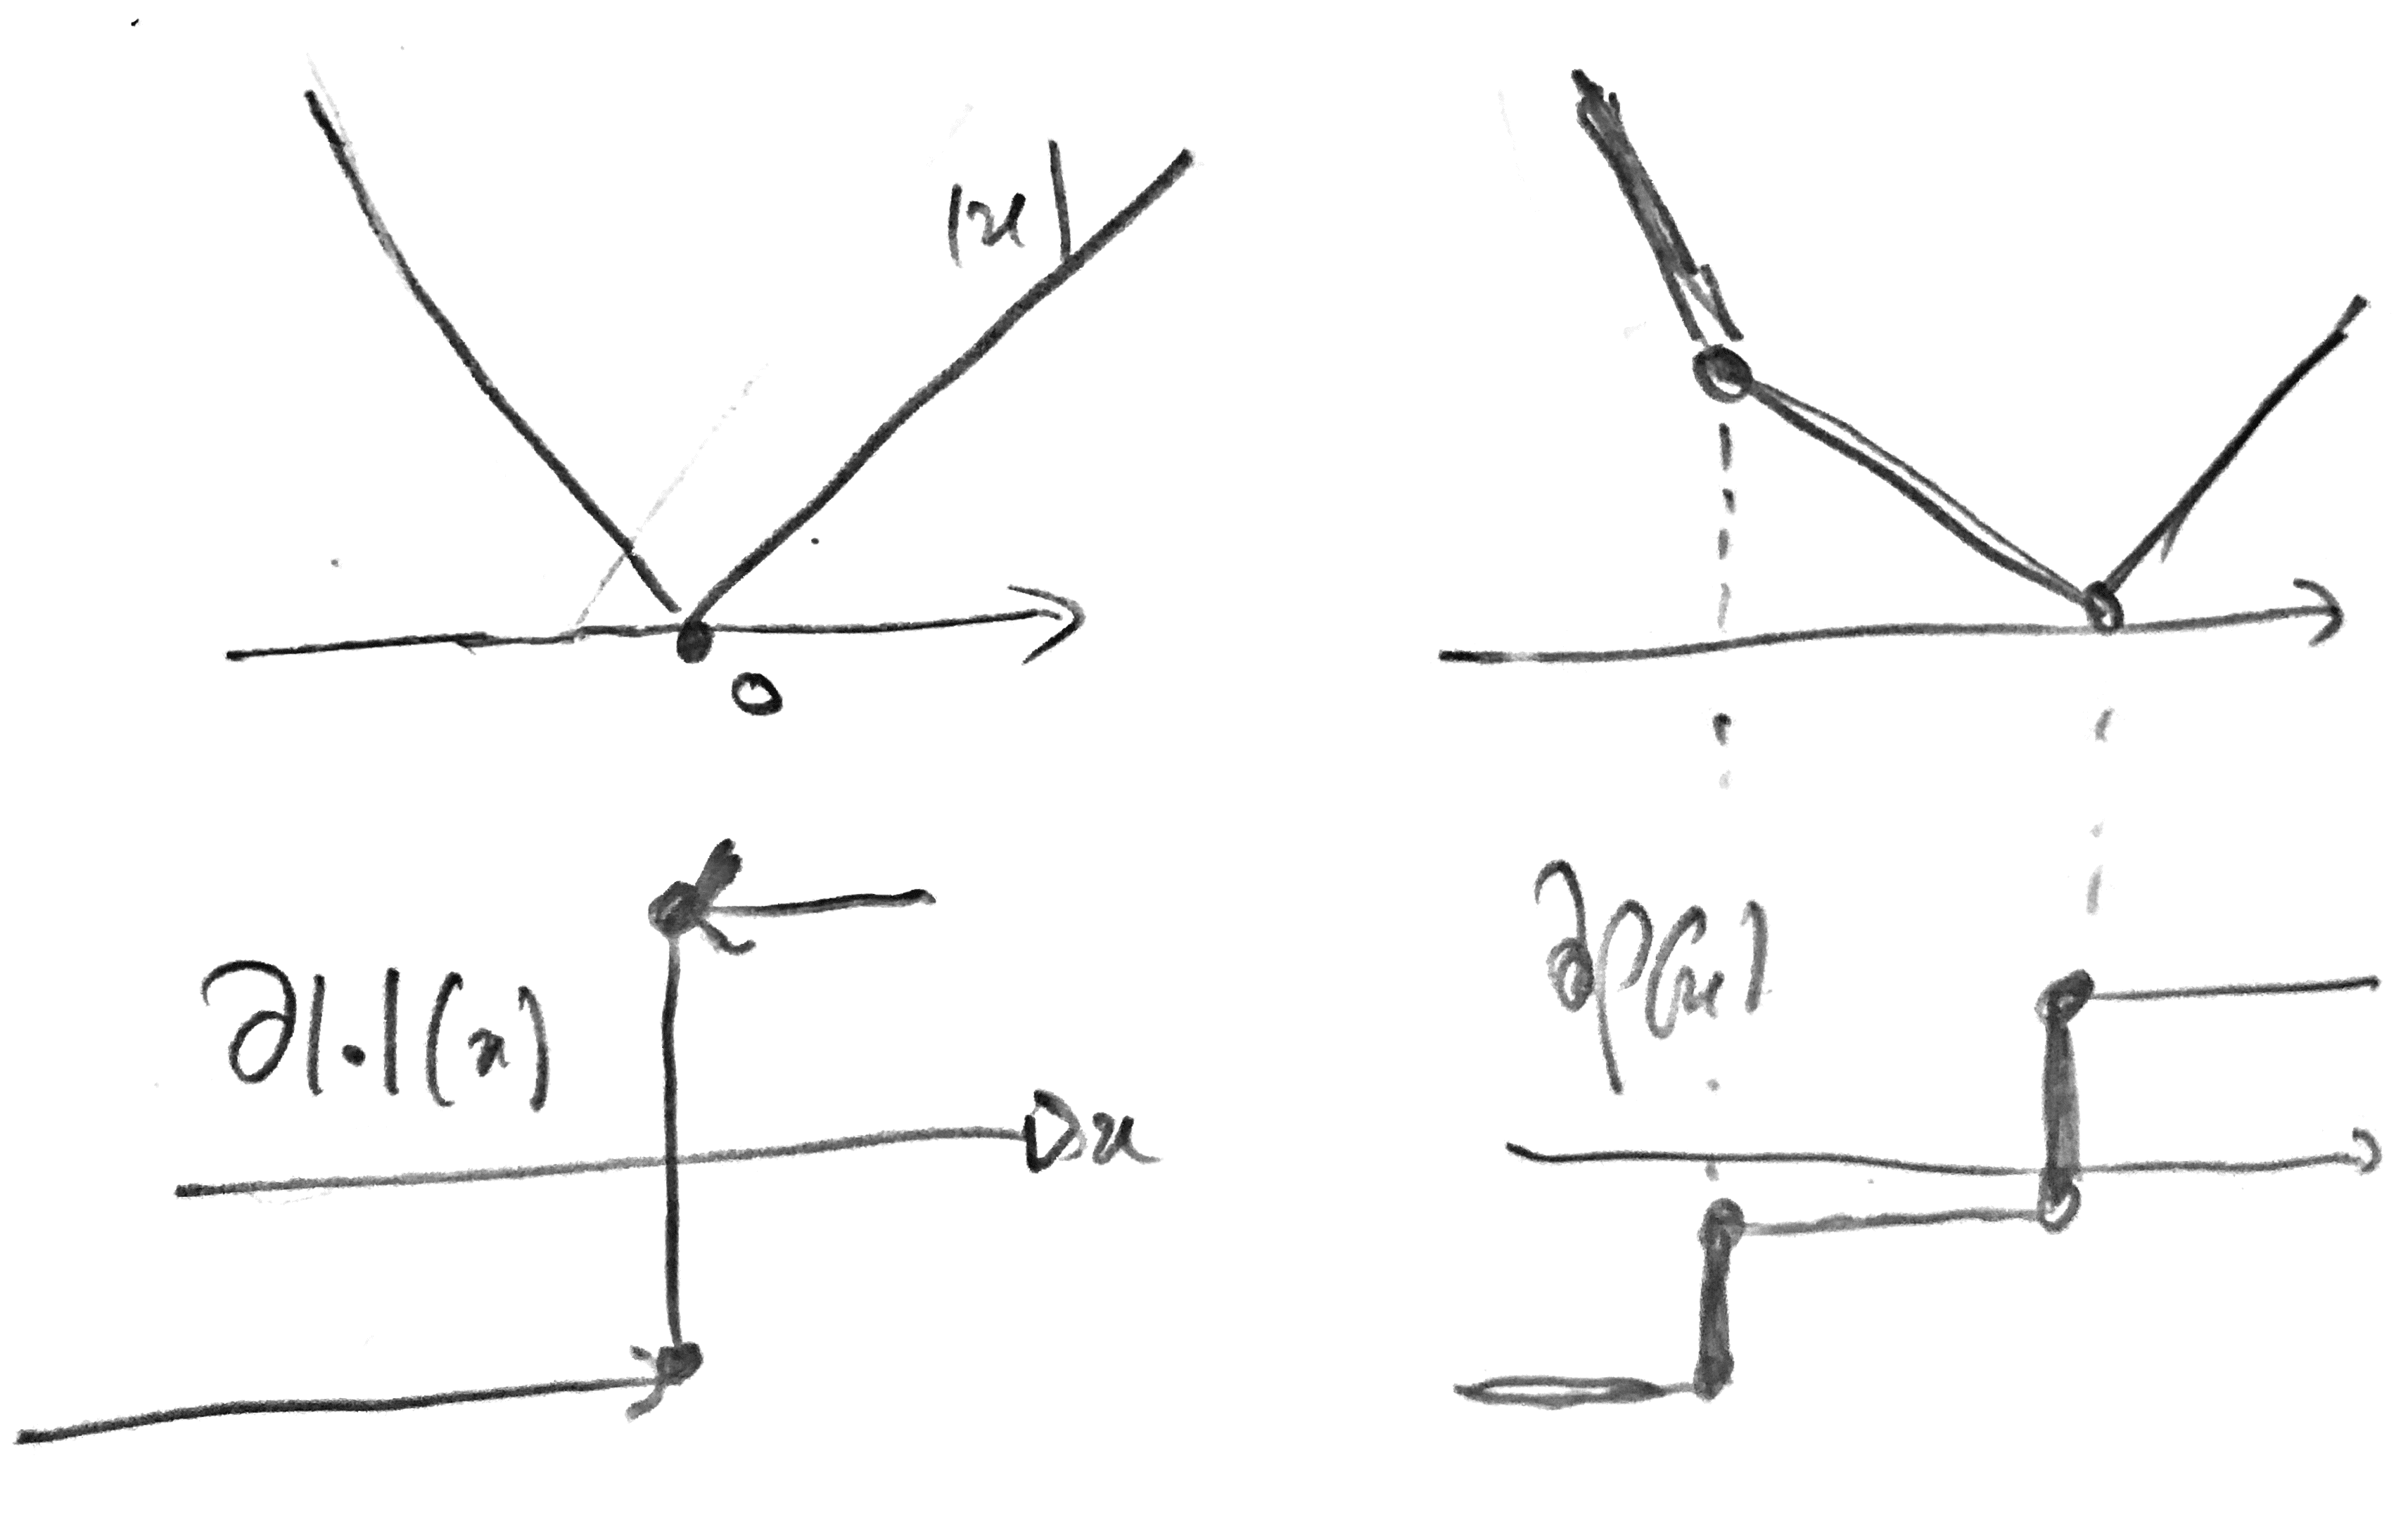 |x|
0
∂|·|(x)
x
∂f(x)